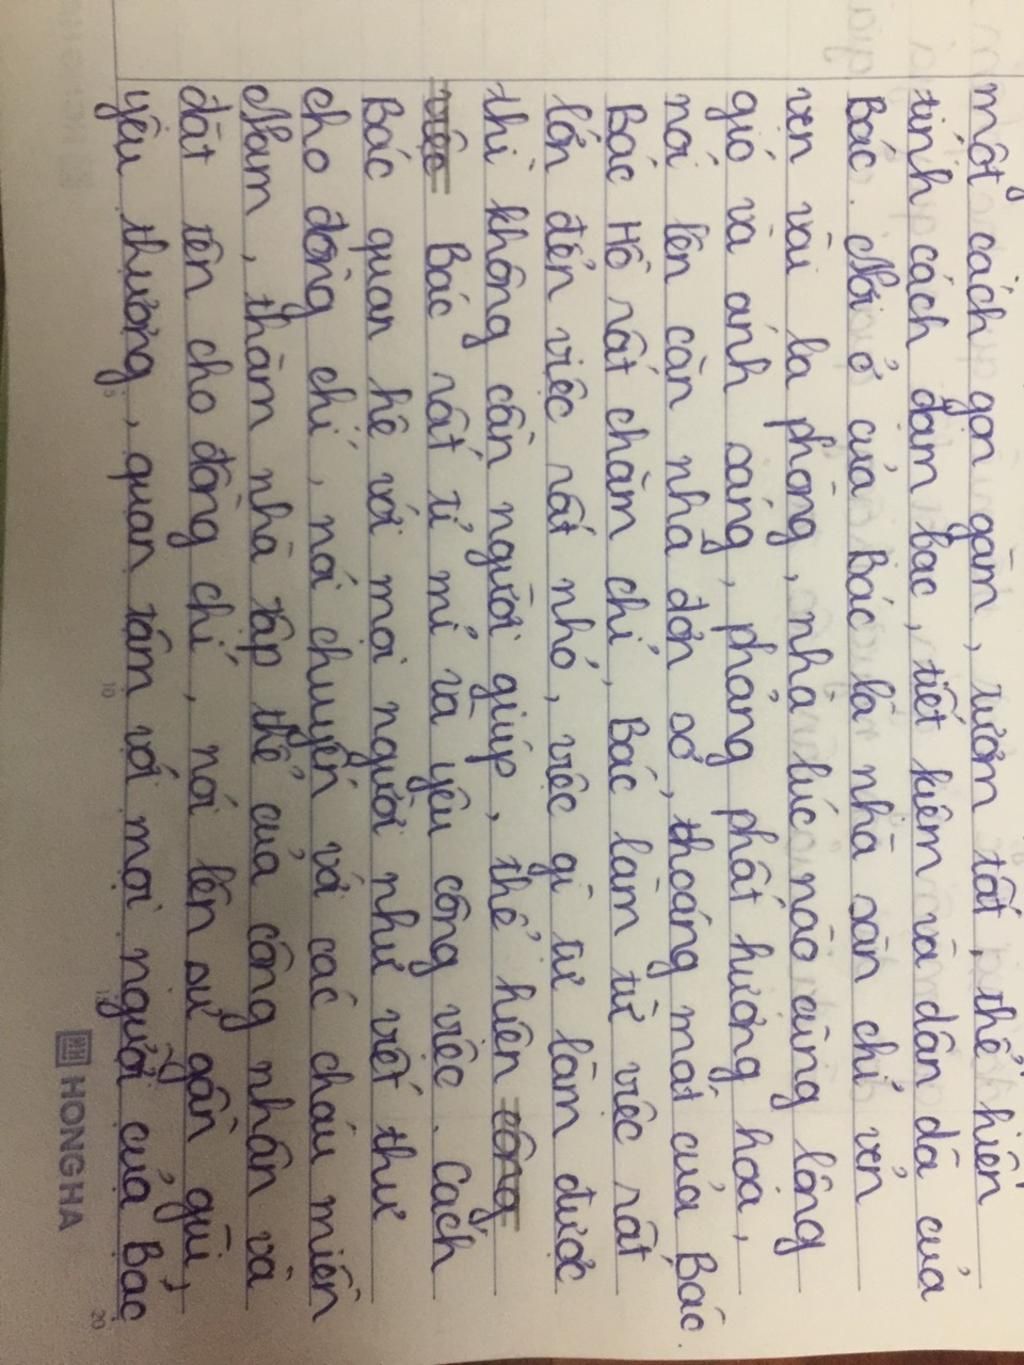 một cách gọn gàm, rườm tốt, thể hiện
tính cách đạm bạc, tiết kiệm và dân dã của
Bác. Nơi ở của Bác là nhà sàn chỉ vẻn
vẹn vài ba phòng, nhà lúc nào cũng lộng
gió và ánh sáng, phảng phất hương hoa,
nói lên căn nhà đơn sơ, thoáng mát của Bác.
Bác Hồ rất chăm chỉ, Bác làm từ việc rất
lớn đến việc rất nhỏ, việc gì tự làm được
thì không cần người giúp, thể hiện công
việc Bác rất tỉ mỉ và yêu công việc. Cách
Bác quan hệ với mọi người như viết thư
cho đồng chí, nói chuyện với các cháu miền
Nam, thăm nhà tập thể của công nhân và
đặt tên cho đồng chí, nói lên sự gần gũi,
yêu thương, quan tâm với mọi người của Bác
5
10
15
20
HH HONG HA